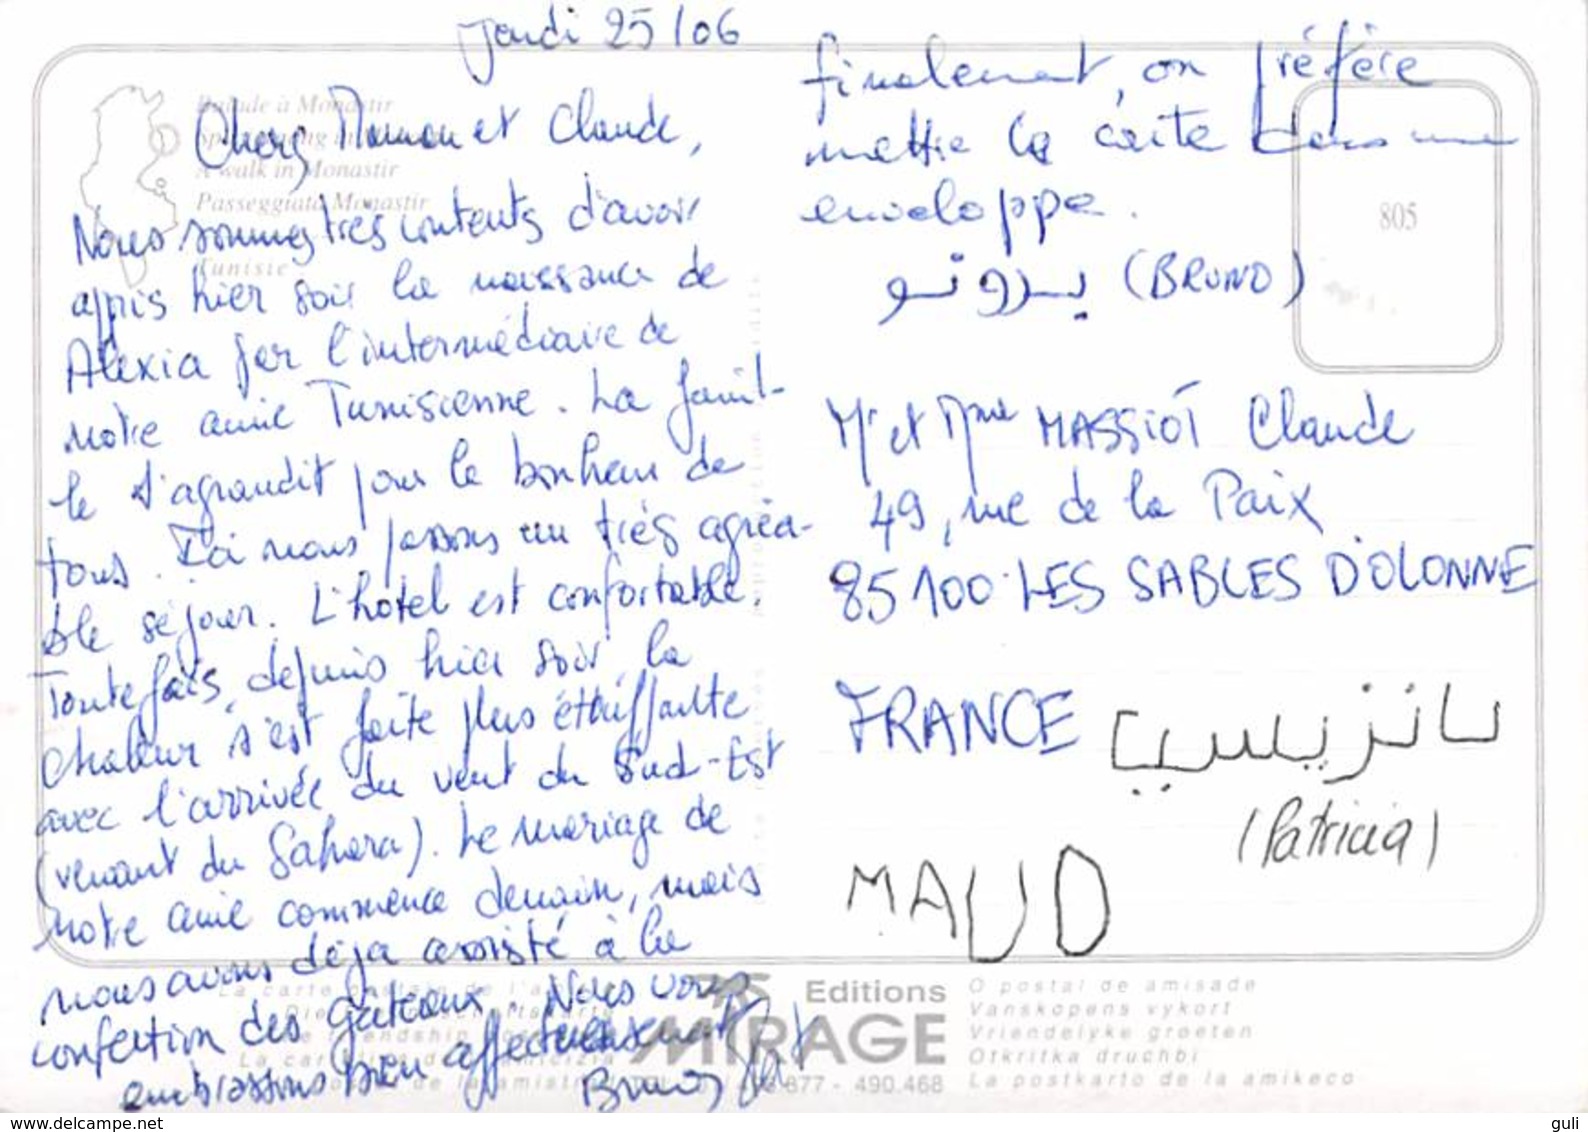 Jeudi 25/06
Balade à Monastir
A walk in Monastir
Passeggiata Monastir
Tunisie
Chers Maman et Claude,
Nous sommes très contents d'avoir
appris hier soir la naissance de
Alexia par l'intermédiaire de
notre amie Tunisienne. La famil-
le s'agrandit pour le bonheur de
tous. Ici nous passons un très agréa-
ble séjour. L'hôtel est confortable.
Toutefois, depuis hier soir, la
chaleur s'est faite plus étouffante
avec l'arrivée du vent du Sud-Est
(venant du Sahara). Le mariage de
notre amie commence demain, mais
nous avons déjà assisté à la
confection des gateaux. Nous vous
embrassons bien affectueusement
Bruno Pat
finalement, on préfère
mettre la carte dans une
enveloppe.
برونو (BRUNO)
805
Mr et Mme MASSIOT Claude
49, rue de la Paix
85100 LES SABLES D'OLONNE
FRANCE
باتريسيا
(Patricia)
MAUD
Editions
MIRAGE
877 - 490.468
O postal de amisade
Vanskapens vykort
Vriendelyke groeten
Otkritka druchbi
La postkarto de la amikeco
delcampe.net
guli